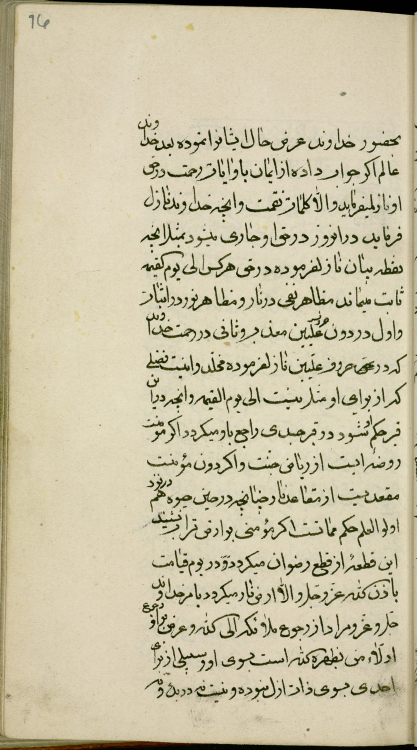 16
بحضور خداوند عرض حال ایشانرا نموده بعد خداوند
عالم اکر جواب داده از ایمان باو ایات رحمت در حق
او نازل میفرماید والا کلمات نقمت و انچه خداوند نازل
فرماید در انروز در حق او جاری میشود بمثل انچه
نقطه بیان نازل فرموده در حق هر کس الی یوم القیمه
ثابت میماند مظاهر نفی در نار و مظاهر نور در اثبات
و اول در دون علیین معذب و ثانی در رحمت خداوند
که در حق حروف علیین نازل فرموده مخلد و نیست فضلی
که از برای او مثل نیست الی یوم القیمه و انچه در این
قبر حکم او شود در قبر جسدی راجع باو میکردد اکر مؤمنست
روضه ایست از ریاض جنت و اکر دون مؤمنست
مقعدیست از مقاعد نار چنانچه در حین حیوة هم در نزد
اولو العلم حکم همانست اکر مؤمنی بر ارض قرار کیرد
این قطعهٔ از قطع رضوان میکردد و در یوم قیامت
باذن الله عز و جل والا ارض نار میکردد بامر خداوند
جل و عز و مراد از رجوع ملائکه الی الله و عرض
ادلاء من یظهره الله است بسوی او و سبیلی از برای
احدی بسوی ذات ازل نبوده و نیست نه در بدء و نه